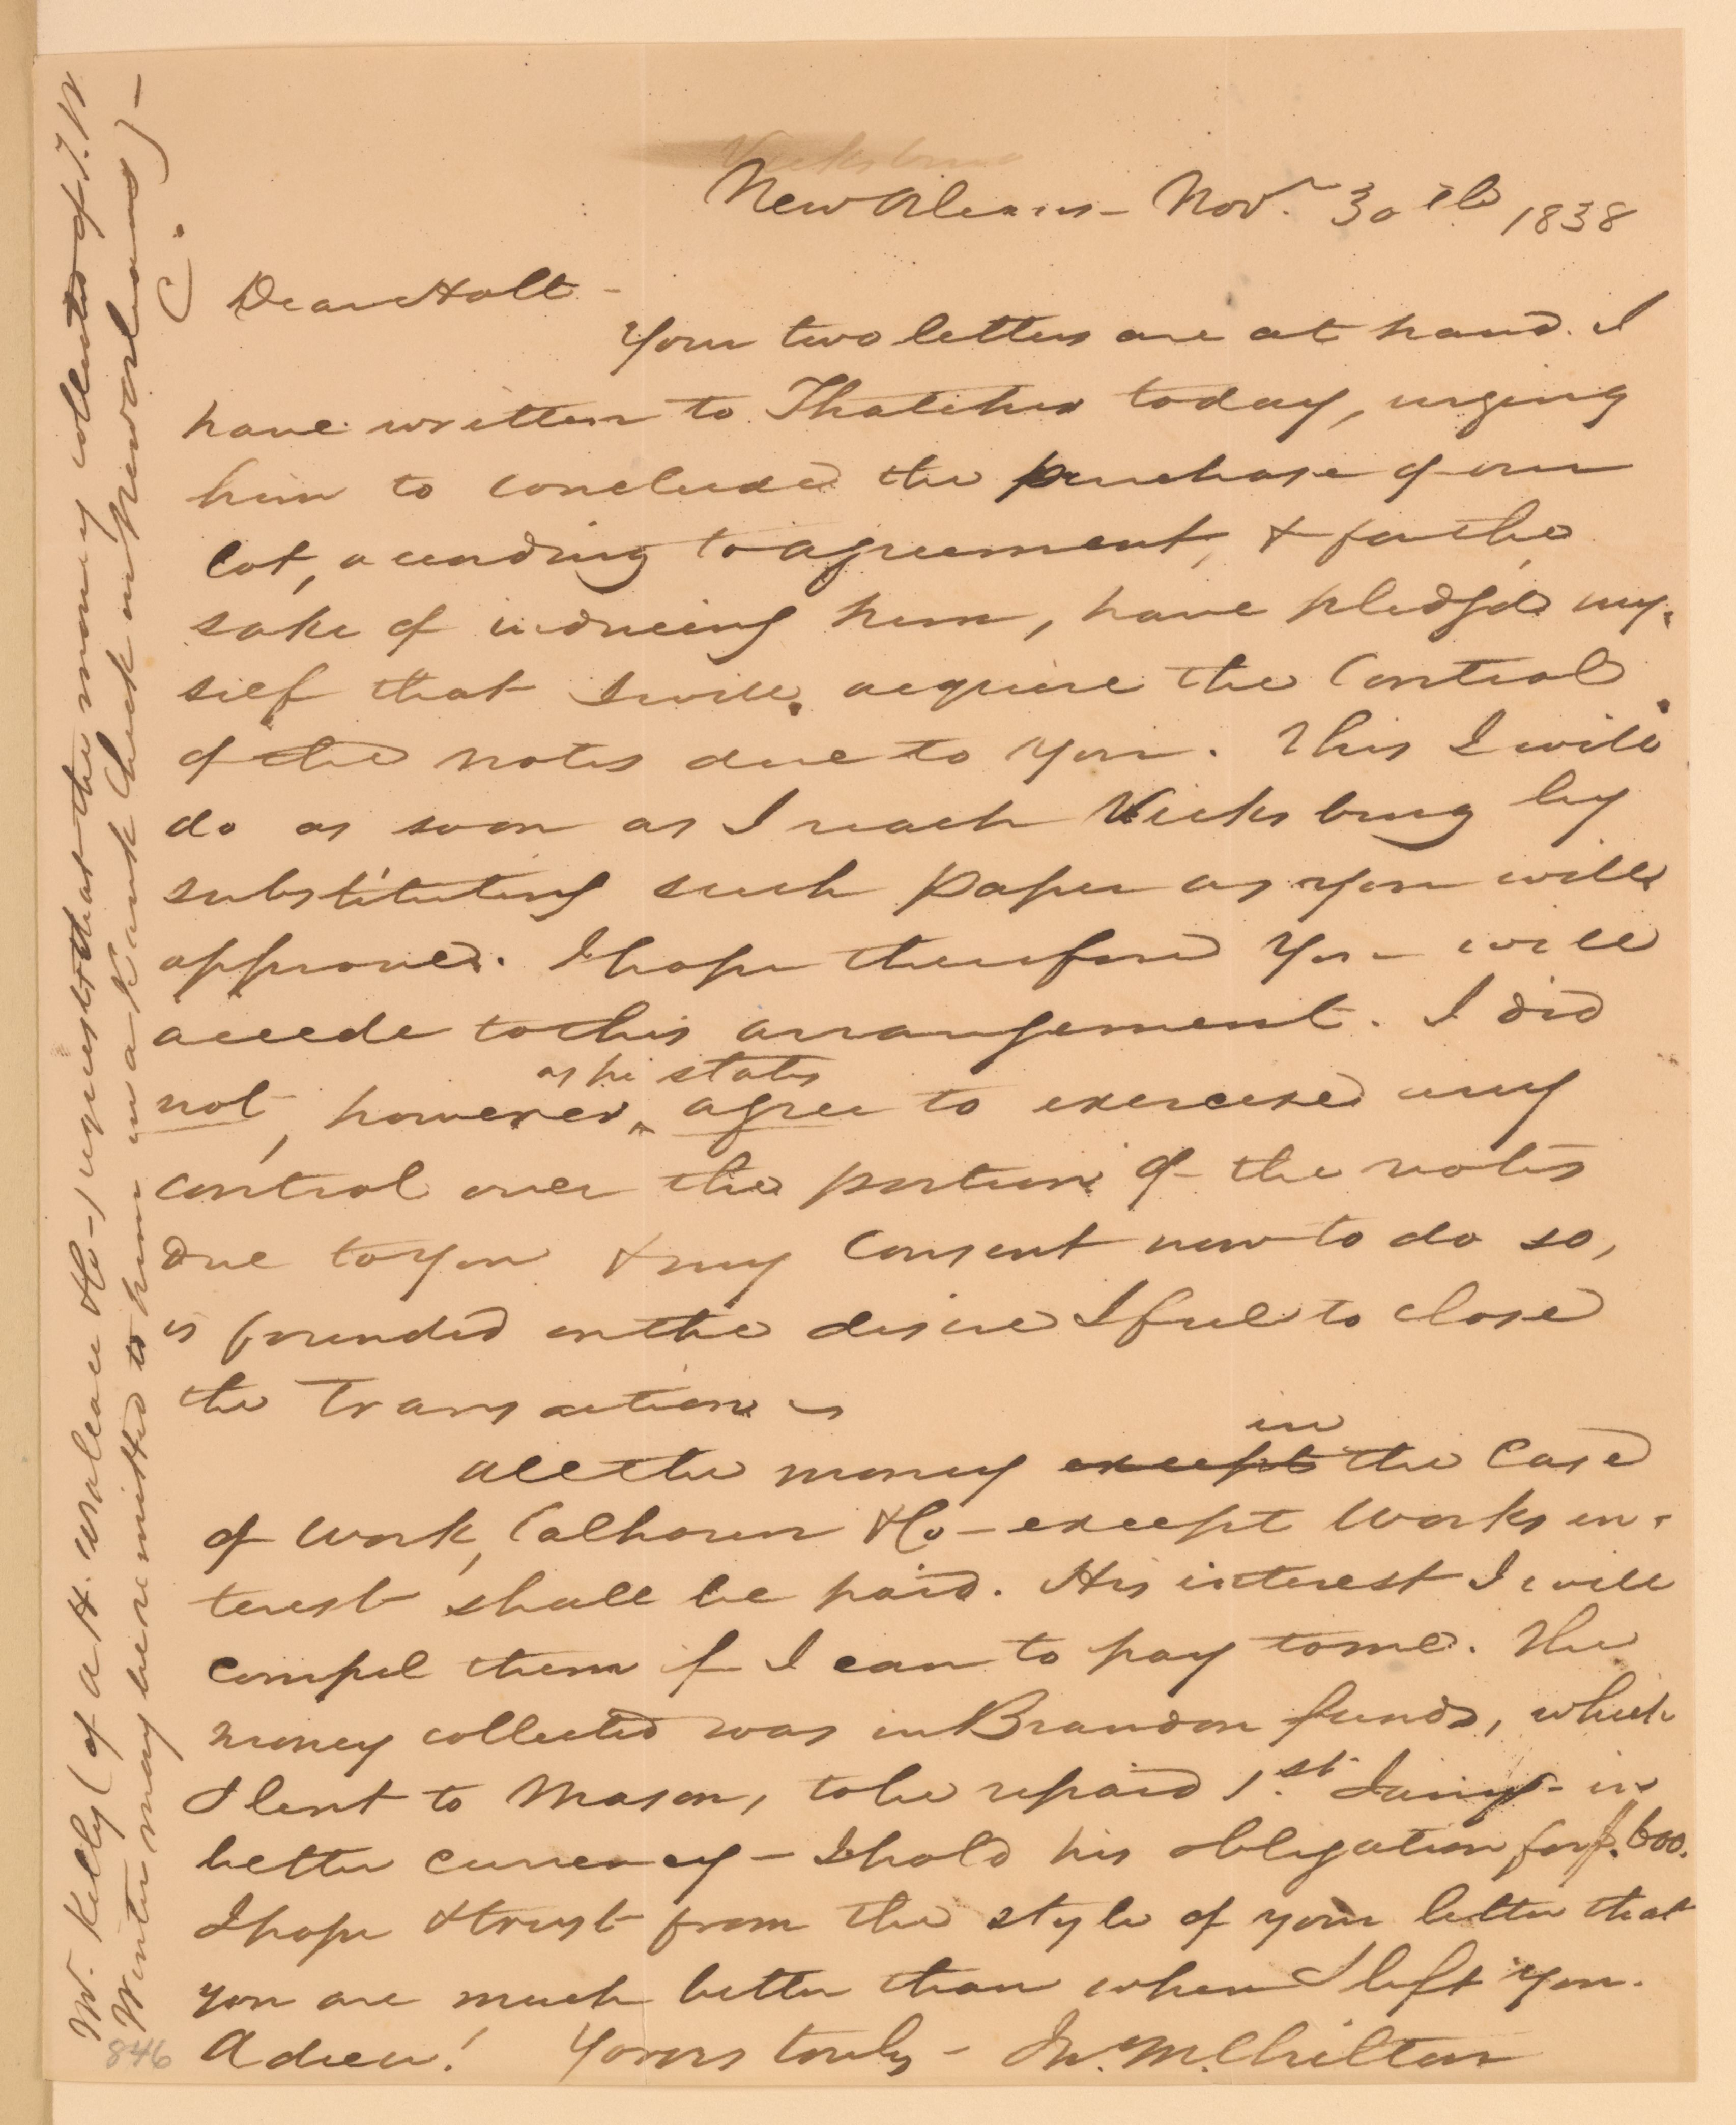 Vicksburg
New Orleans - Nov. 30th 1838
Dear Holt -
Your two letters are at hand. I
have written to Thatcher today, urging
him to conclude the purchase of our
lot, according to agreement, & for the
sake of inducing him, have pledged my-
self that I will acquire the control
of the notes due to you. This I will
do as soon as I reach Vicksburg by
substituting such paper as you will
approve. I hope therefore you will
accede to this arrangement. I did
as he states
not, however, agree to exercise any
control over the portion of the notes
due to you & my consent now to do so,
is founded on the desire I feel to close
the transaction -
in
All the money except the case
of Work, Calhoun & Co - except Works in-
terest shall be paid. His interest I will
compel them if I can to pay to me. The
money collected was in Brandon funds, which
I lent to Mason, to be repaid 1st. Jany - in
better currency - I hold his obligation for $. 600.
I hope & trust from the style of your letter that
you are much better than when I left you.
Adieu! Yours truly - Jn. M. Chilton
W. Kelly (of A H. Wallace & Co -) requests that the money collected of T. W
Winter may be remitted to him in a Bank Check on New Orleans) -
C.
846